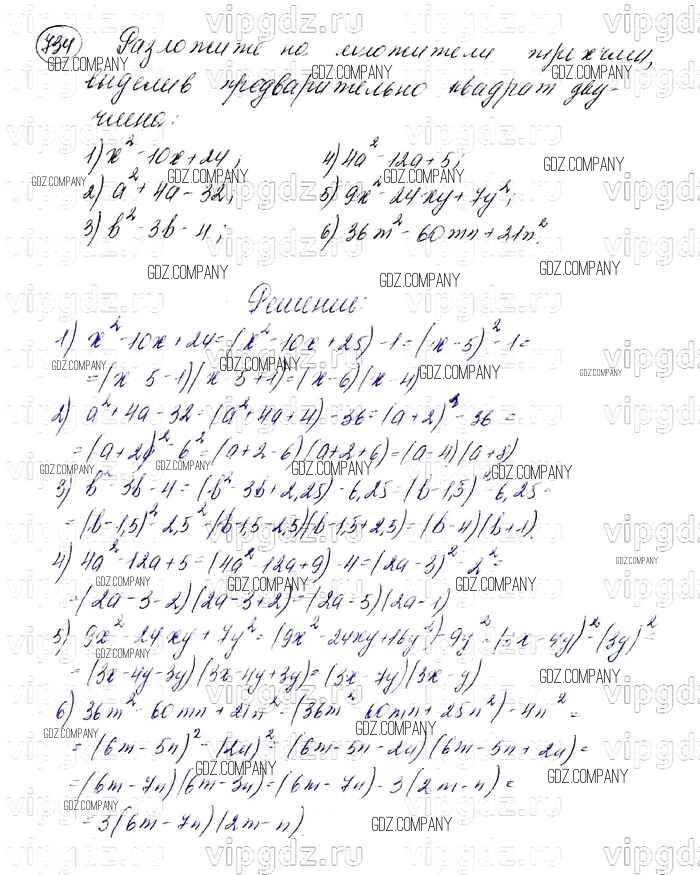 734 Разложите на множители трехчлен,
выделив предварительно квадрат дву-
члена:
1) x² - 10x + 24; 4) 4a² - 12a + 5;
2) a² + 4a - 32; 5) 9x² - 24xy + 7y²;
3) b² - 3b - 4; 6) 36m² - 60mn + 21n².
Решение:
1) x² - 10x + 24 = (x² - 10x + 25) - 1 = (x - 5)² - 1 =
= (x - 5 - 1)(x - 5 + 1) = (x - 6)(x - 4)
2) a² + 4a - 32 = (a² + 4a + 4) - 36 = (a + 2)² - 36 =
= (a + 2)² - 6² = (a + 2 - 6)(a + 2 + 6) = (a - 4)(a + 8)
3) b² - 3b - 4 = (b² - 3b + 2,25) - 6,25 = (b - 1,5)² - 6,25 =
= (b - 1,5)² - 2,5² = (b - 1,5 - 2,5)(b - 1,5 + 2,5) = (b - 4)(b + 1).
4) 4a² - 12a + 5 = (4a² - 12a + 9) - 4 = (2a - 3)² - 2² =
= (2a - 3 - 2)(2a - 3 + 2) = (2a - 5)(2a - 1)
5) 9x² - 24xy + 7y² = (9x² - 24xy + 16y²) - 9y² = (3x - 4y)² - (3y)² =
= (3x - 4y - 3y)(3x - 4y + 3y) = (3x - 7y)(3x - y)
6) 36m² - 60mn + 21n² = (36m² - 60mn + 25n²) - 4n² =
= (6m - 5n)² - (2n)² = (6m - 5n - 2n)(6m - 5n + 2n) =
= (6m - 7n)(6m - 3n) = (6m - 7n) · 3(2m - n) =
= 3(6m - 7n)(2m - n)
GDZ.COMPANY
vipgdz.ru